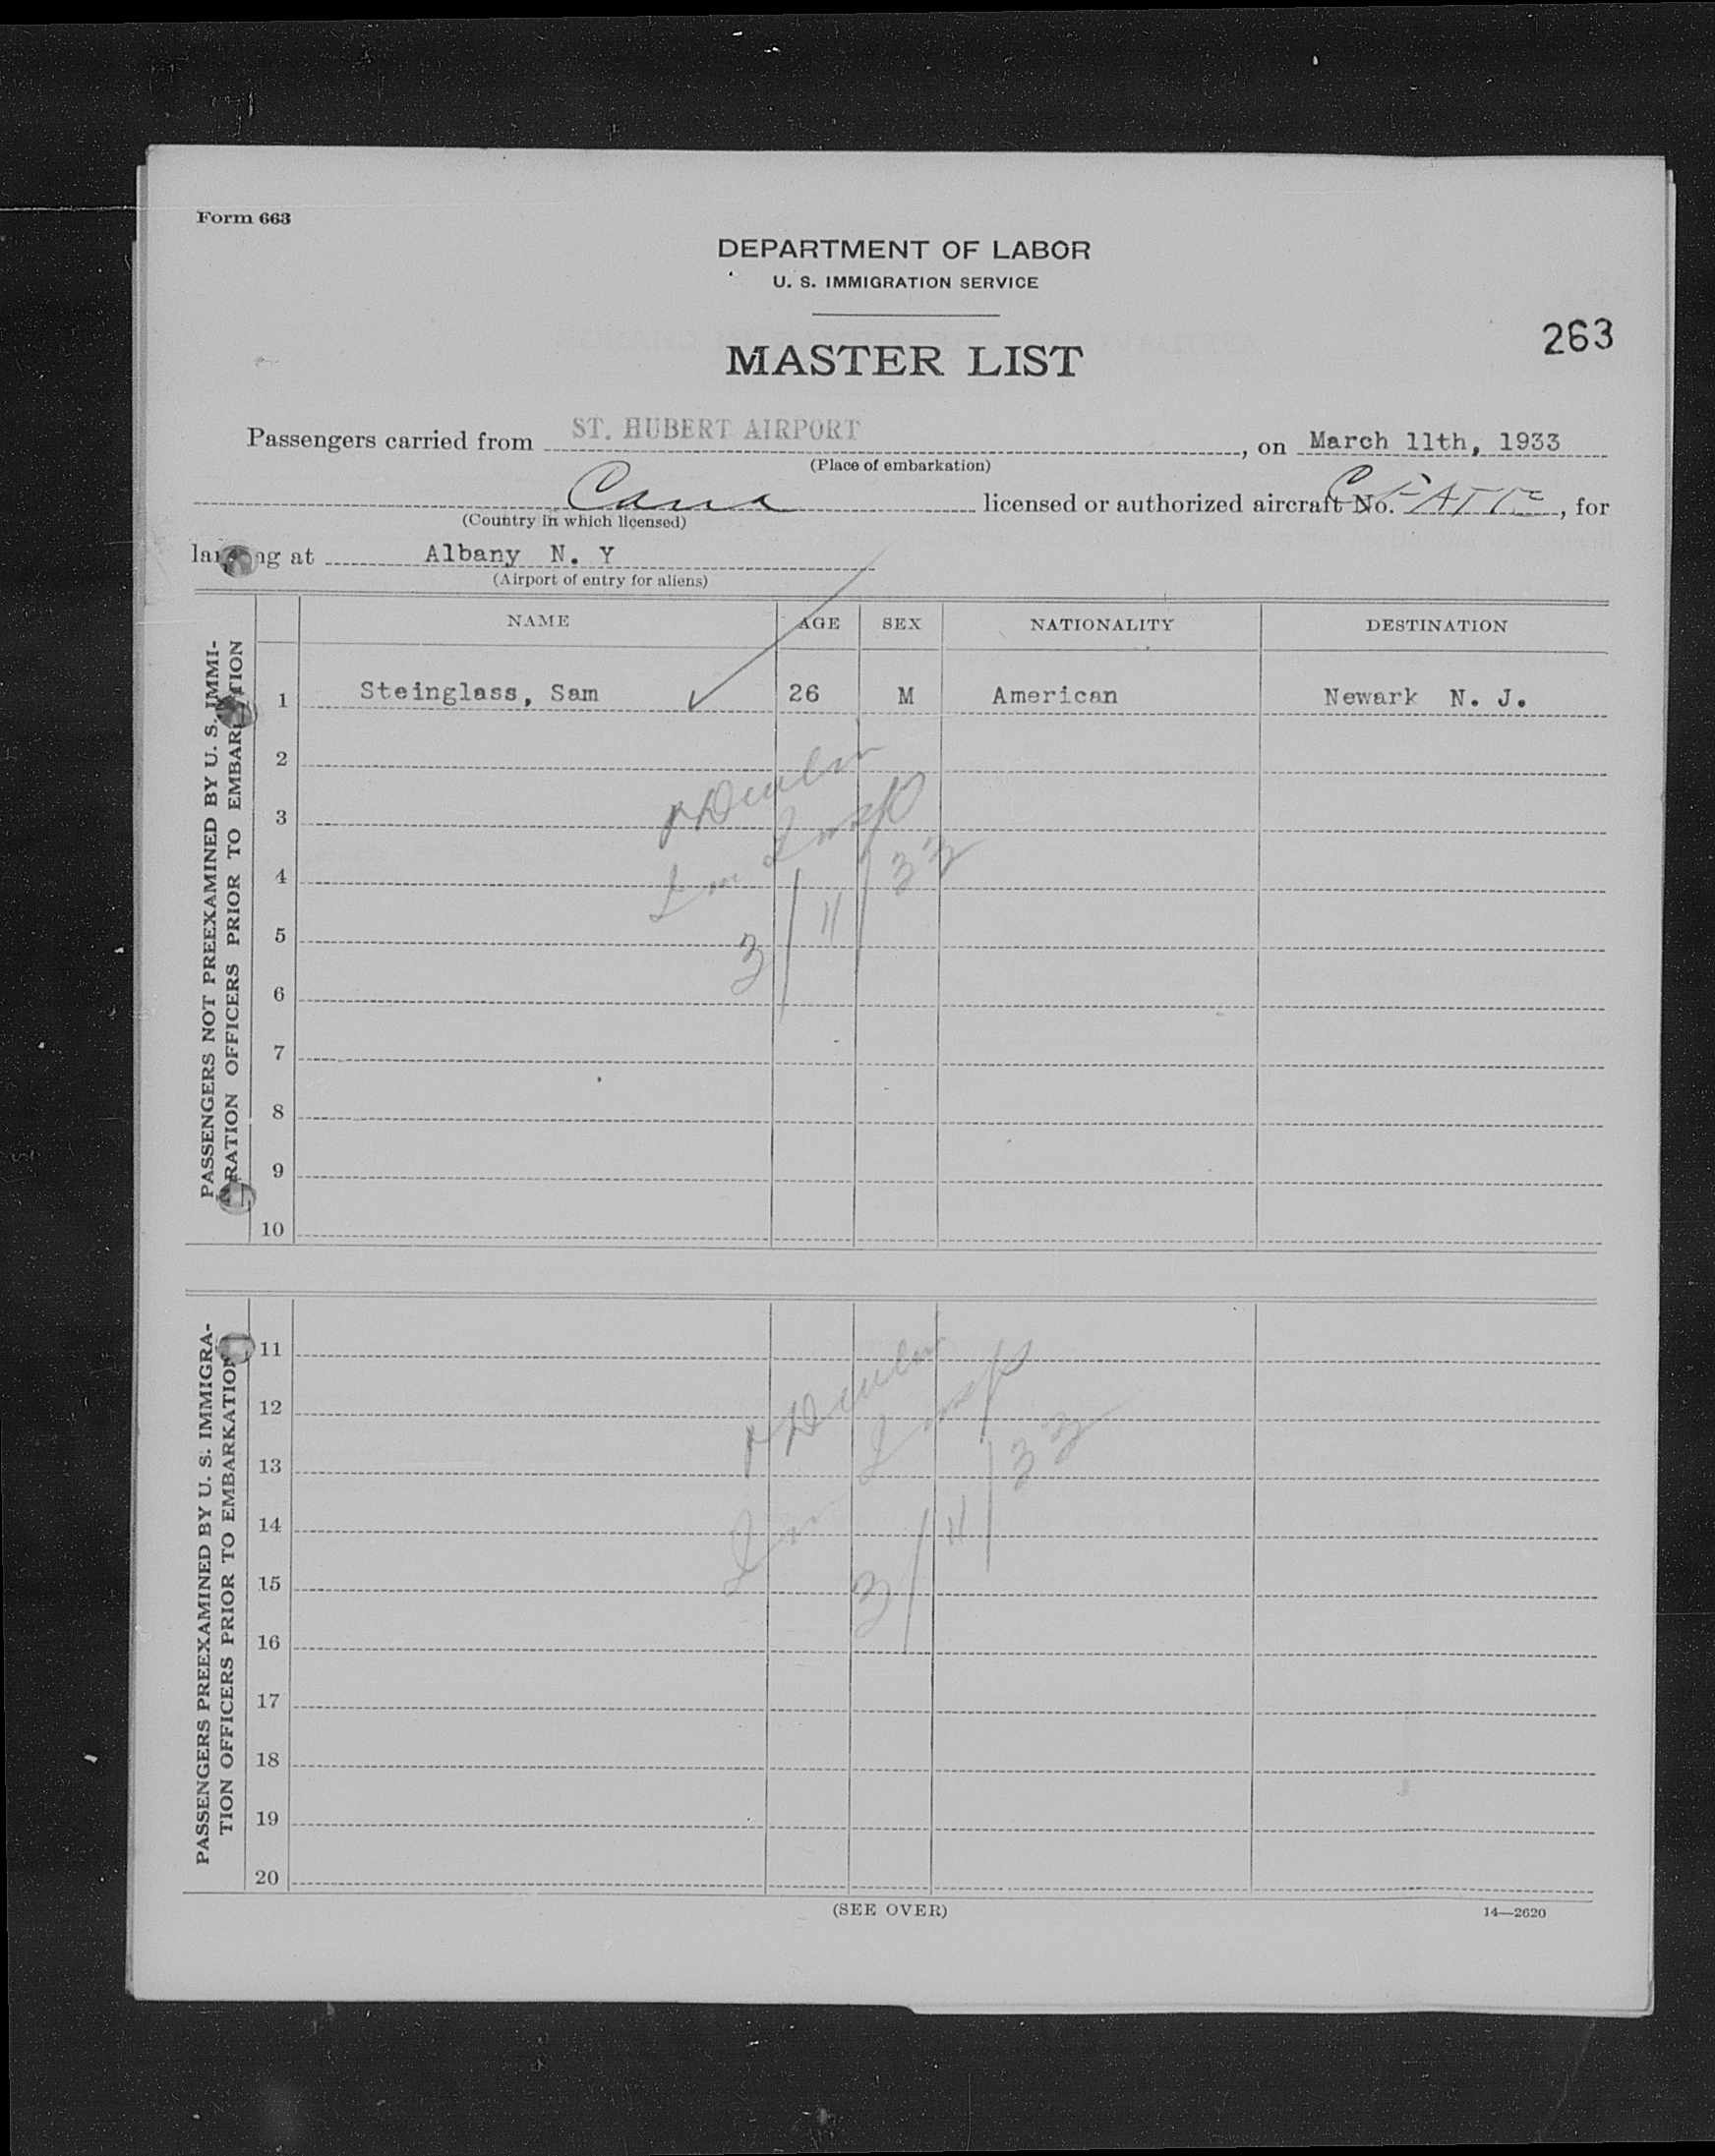 Form 663
DEPARTMENT OF LABOR
U. S. IMMIGRATION SERVICE
263
MASTER LIST
Passengers carried from ST. HUBERT AIRPORT, on March 11th, 1933
(Place of embarkation)
Cana licensed or authorized aircraft No. , for
(Country in which licensed)
landing at Albany N. Y
(Airport of entry for aliens)
NAME AGE SEX NATIONALITY DESTINATION
PASSENGERS NOT PREEXAMINED BY U. S. IMMI-
GRATION OFFICERS PRIOR TO EMBARKATION
1 Steinglass, Sam 26 M American Newark N. J.
2
3
4
5
6
7
8
9
10
Insp
3/11/33
PASSENGERS PREEXAMINED BY U. S. IMMIGRA-
TION OFFICERS PRIOR TO EMBARKATION
11
12
13
14
15
16
17
18
19
20
Insp
3/11/33
(SEE OVER)
14—2620